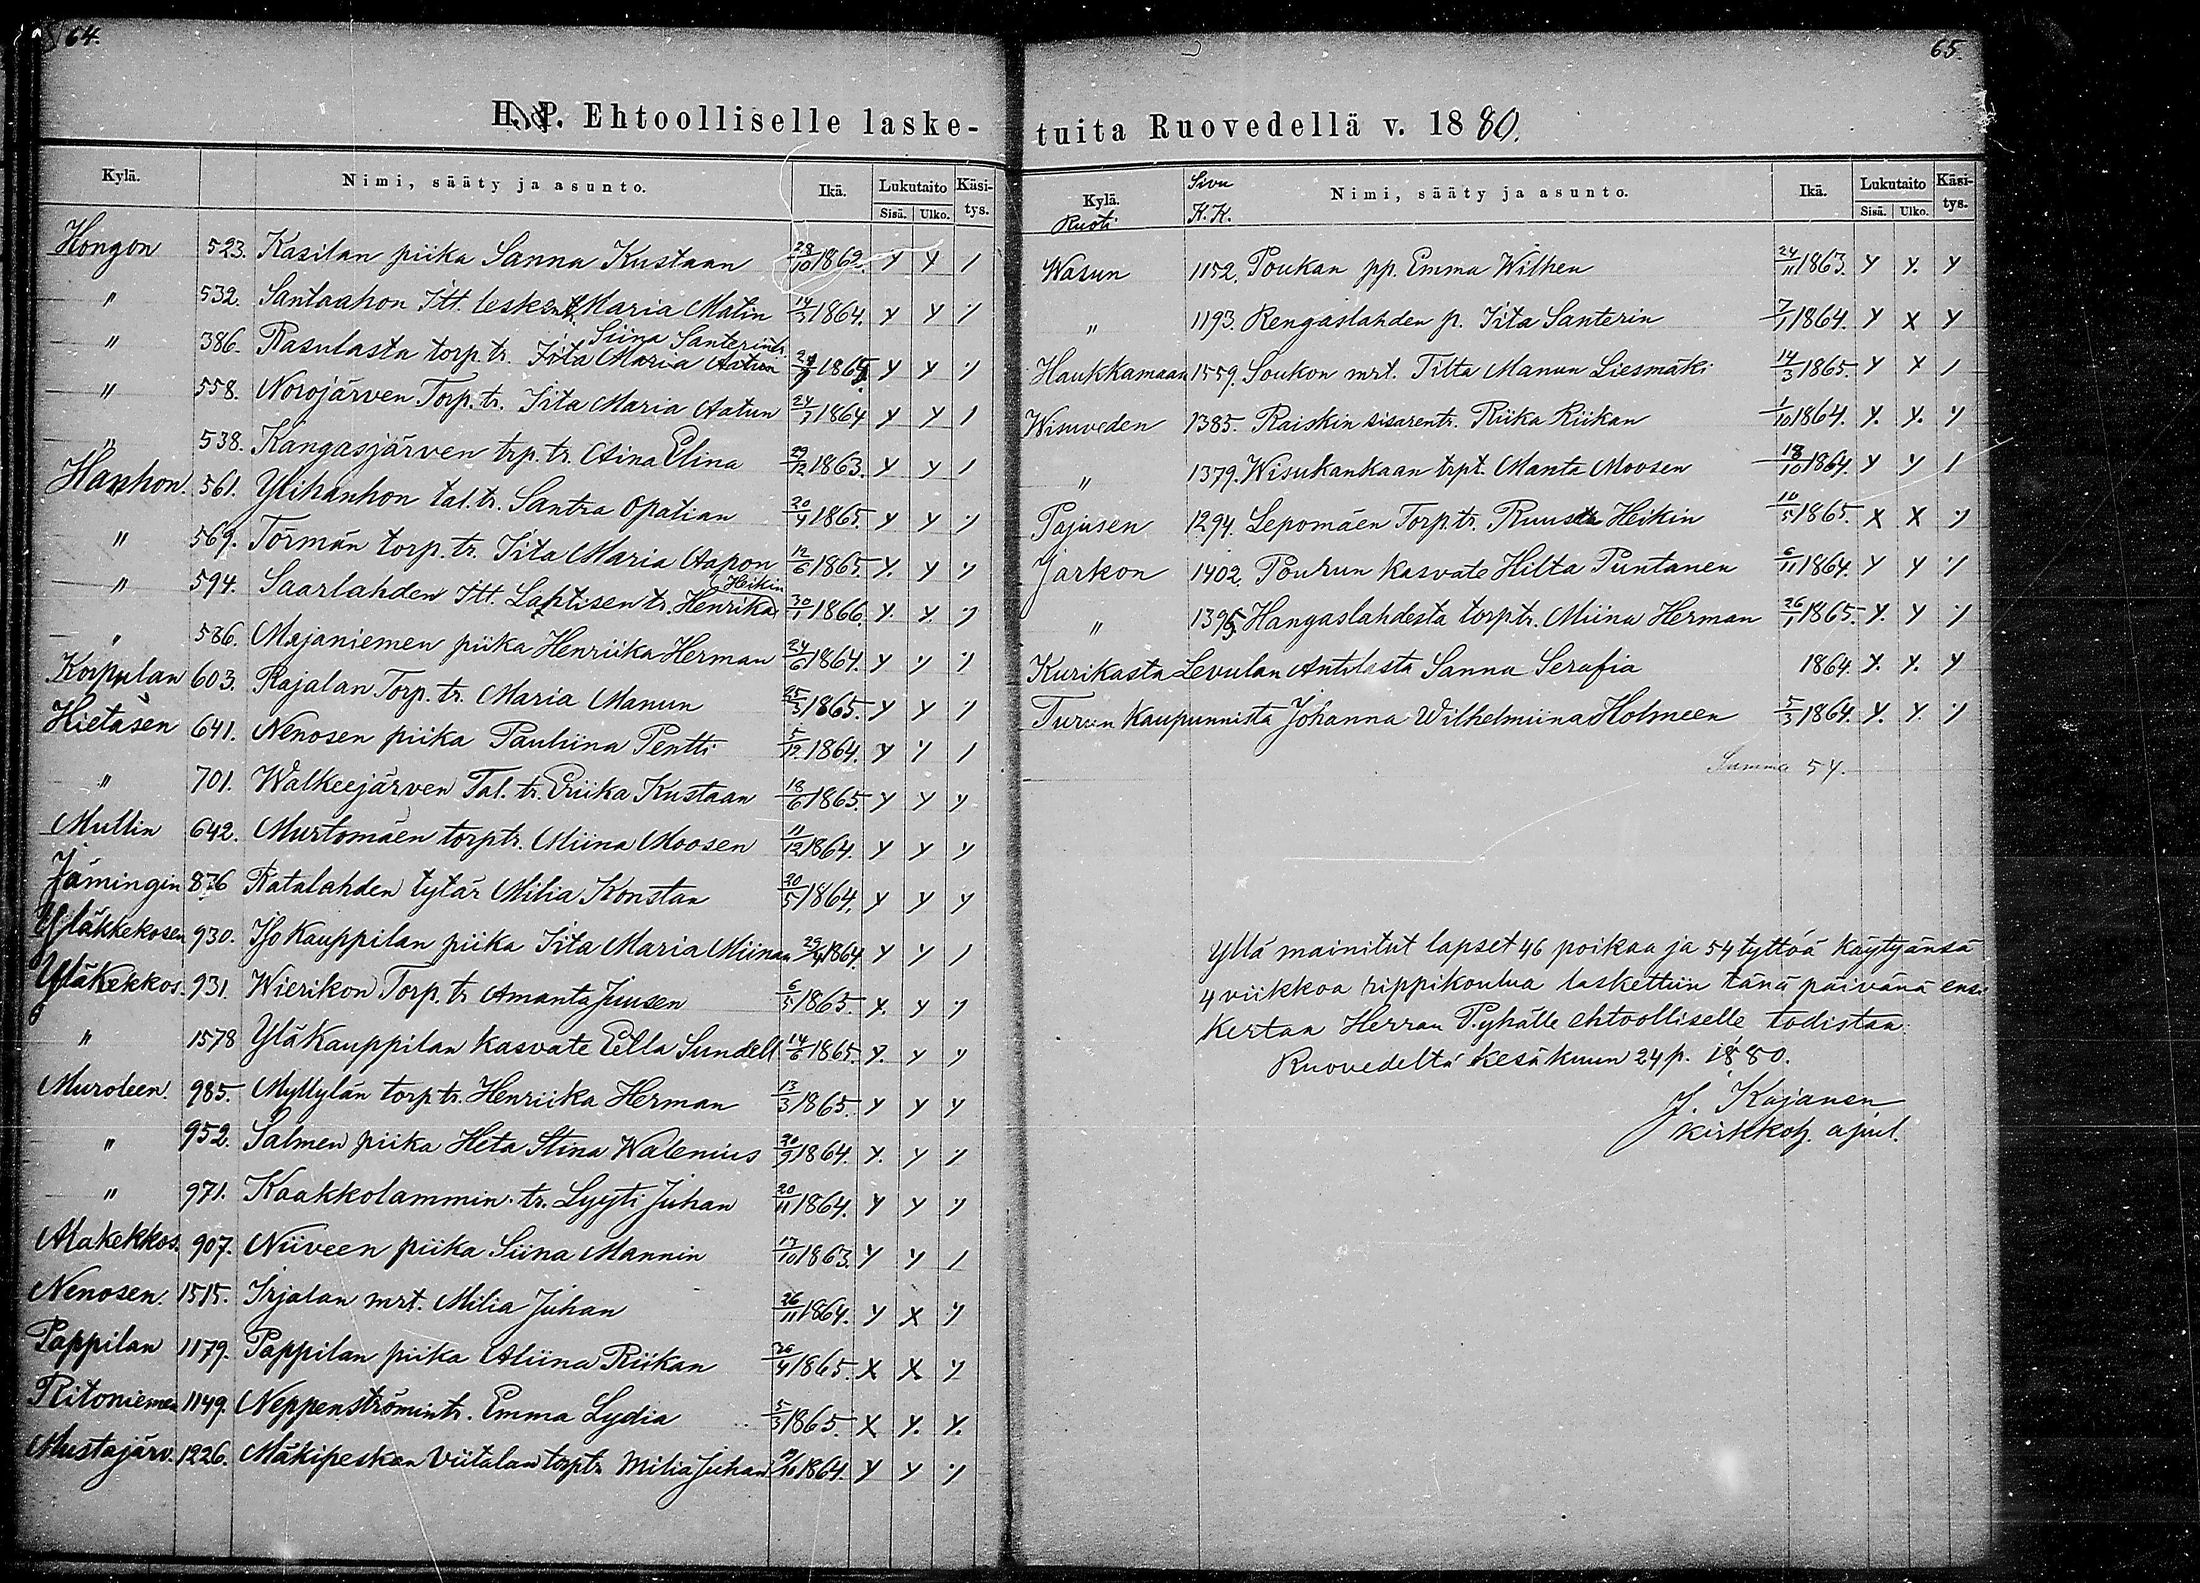 64.
H. P. Ehtoolliselle laske-
Kylä. Nimi, sääty ja asunto. Ikä. Lukutaito Käsi-
Sisä. Ulko. tys.
Hongon 523. Kasilan piika Sanna Kustaan 28/10 1862. y y /
" 532. Santaahon Itt. lesken tr. Maria Matin 14/3 1864. y y y
Siina Santerintr.
" 386. Rasulasta torp. tr. Iita Maria Aation 1864. y y y
" 558. Norojärven Torp. tr. Iita Maria Aatun 24/7 1864 y y /
" 538. Kangasjärven trp. tr. Aina Elina 29/12 1863. y y /
Hanhon. 561. Ylihanhon tal. tr. Santra Opatian 20/4 1865. y y y
" 569. Törmän torp. tr. Iita Maria Aapon 12/6 1865. y. y y
Heikin
" 594. Saarlahden Itt. Lahtisen tr. Henrika 30/1 1866. y. y. y
" 586. Majaniemen piika Henriika Herman 24/6 1864. y y y
Korpulan 603. Rajalan Torp. tr. Maria Manun 25/3 1865. y y y
Hietasen 641. Nenosen piika Pauliina Pentti 5/12 1864. y y /
" 701. Walkeejärven Tal. tr. Eriika Kustaan 18/6 1865. y y y
Mullin 642. Murtomäen torptr. Miina Moosen 11/12 1864. y y y
Jämingin 876 Ratalahden tytär Milia Konstan 20/5 1864. y y y
Yläkkekosen 930. Iso Kauppilan piika Iita Maria Miinan 29/4 1864. y y /
Yläkekkos. 931. Wierikon Torp. tr Amanta Juusen 6/5 1865. y. y y
" 1578 Ylä Kauppilan kasvate Eella Sundell 14/6 1865. y. y y
Muroleen. 985. Myllylän torp tr. Henriika Herman 13/3 1865. y y y
" 952. Salmen piika Heta Stina Walenius 20/9 1864. y. y y
" 971. Kaakkolammin tr. Lyyti Juhan 20/11 1864. y y y
Alakekkos. 907. Niiveen piika Siina Mannin 17/10 1863. y y /
Nenosen. 1515. Irjalan mrt. Milia Juhan 26/11 1864. y x y
Pappilan 1179. Pappilan piika Aliina Riikan 26/4 1865. x x y
Ritoniemen 1149. Neppenströmin tr. Emma Lydia 5/3 1865. x y. y.
Mustajärv. 1226. Mäkipeskan Viitalan torptr Milia Juhan 1864. y y y
65.
tuita Ruovedellä v. 1880.
Kylä. Sivu Nimi, sääty ja asunto. Ikä. Lukutaito Käsi-
Ruoti K.K. Sisä. Ulko. tys.
Wasun 1152. Poukan pp. Emma Wilhen 24/11 1863. y y. y
" 1193. Rengaslahden p. Iita Santerin 7/1 1864. y x y
Haukkamaan 1559. Soukon mrt. Tilta Manun Liesmäki 14/3 1865. y x /
Wisuveden 1385. Raiskin sisarentr. Riika Riikan 1/10 1864. y. y. y
" 1379. Wisukankaan trpt. Manta Moosen 18/10 1864. y y /
Pajusen 1294. Lepomäen Torp. tr. Ruusta Heikin 10/5 1865. x x y
Jarkon 1402. Pouhun kasvate Hilta Puntanen 6/11 1864. y y y
" 1395. Hangaslahdesta torptr. Miina Herman 26/1 1865. y. y y
Kurikasta Levulan Antilasta Sanna Serafia 1864. y. y. y
Turun kaupunnista Johanna Wilhelmiina Holmeen 5/3 1864. y. y. y
Summa 54.
Yllä mainitut lapset 46 poikaa ja 54 tyttöä käytyänsä
4 viikkoa rippikoulua laskettiin tänä päivänä ensi
kertaa Herran Pyhälle ehtoolliselle todistaa:
Ruovedeltä kesäkuun 24 p. 1880.
J. Kajanen
kirkkoh. apul.